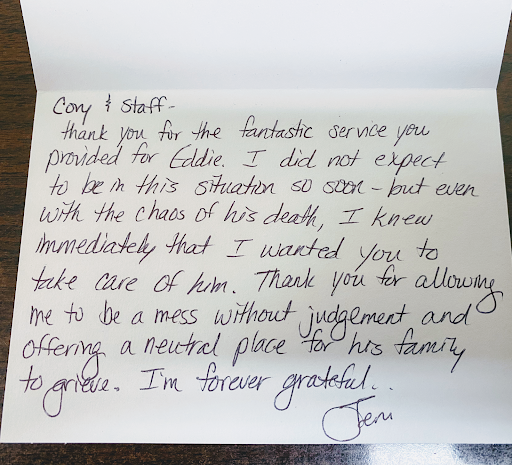 Cory & Staff-
thank you for the fantastic service you
provided for Eddie. I did not expect
to be in this situation so soon - but even
with the chaos of his death, I knew
immediately that I wanted you to
take care of him. Thank you for allowing
me to be a mess without judgement and
offering a neutral place for his family
to grieve. I'm forever grateful...
Jeni